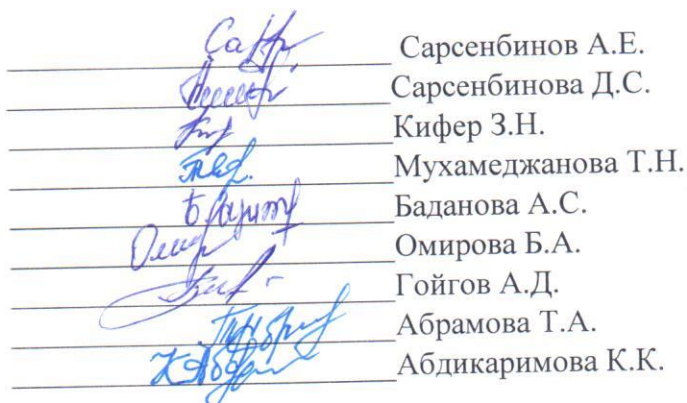 Сарсенбинов А.Е.
Сарсенбинова Д.С.
Кифер З.Н.
Мухамеджанова Т.Н.
Баданова А.С.
Омирова Б.А.
Гойгов А.Д.
Абрамова Т.А.
Абдикаримова К.К.